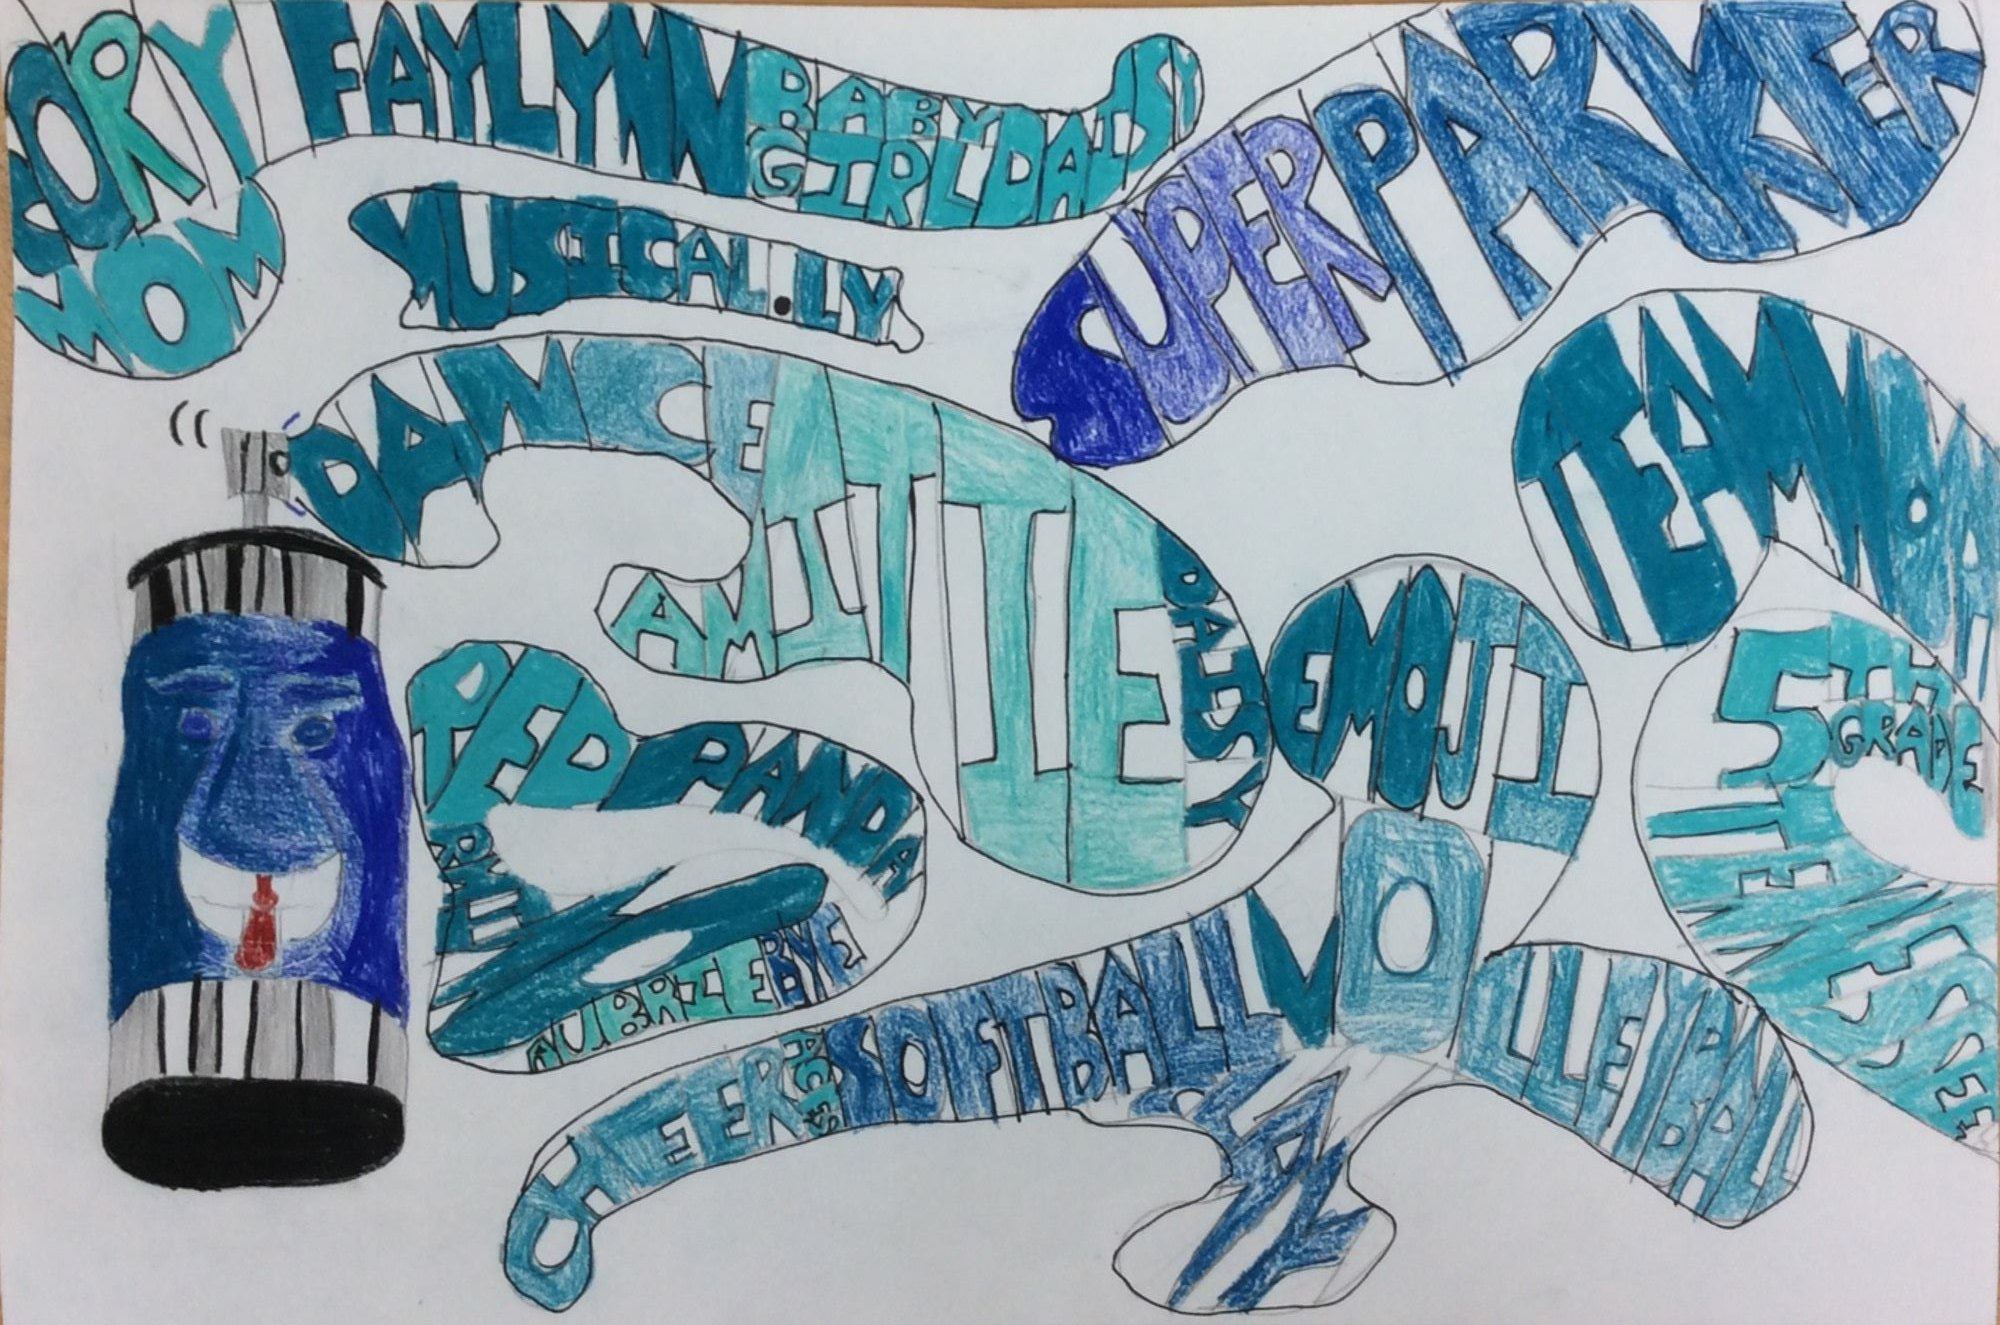 CORY
MOM
FAYLYNN
BABY
GIRL
DAISY
SUPER PARKER
MUSICAL.LY
DANCE
AMITTIE
DAISY
EMOJI
TEAM
5TH
GRADE
RED PANDA
AUBRIE
BYE
CHEER
SOFTBALL
VOLLEYBALL